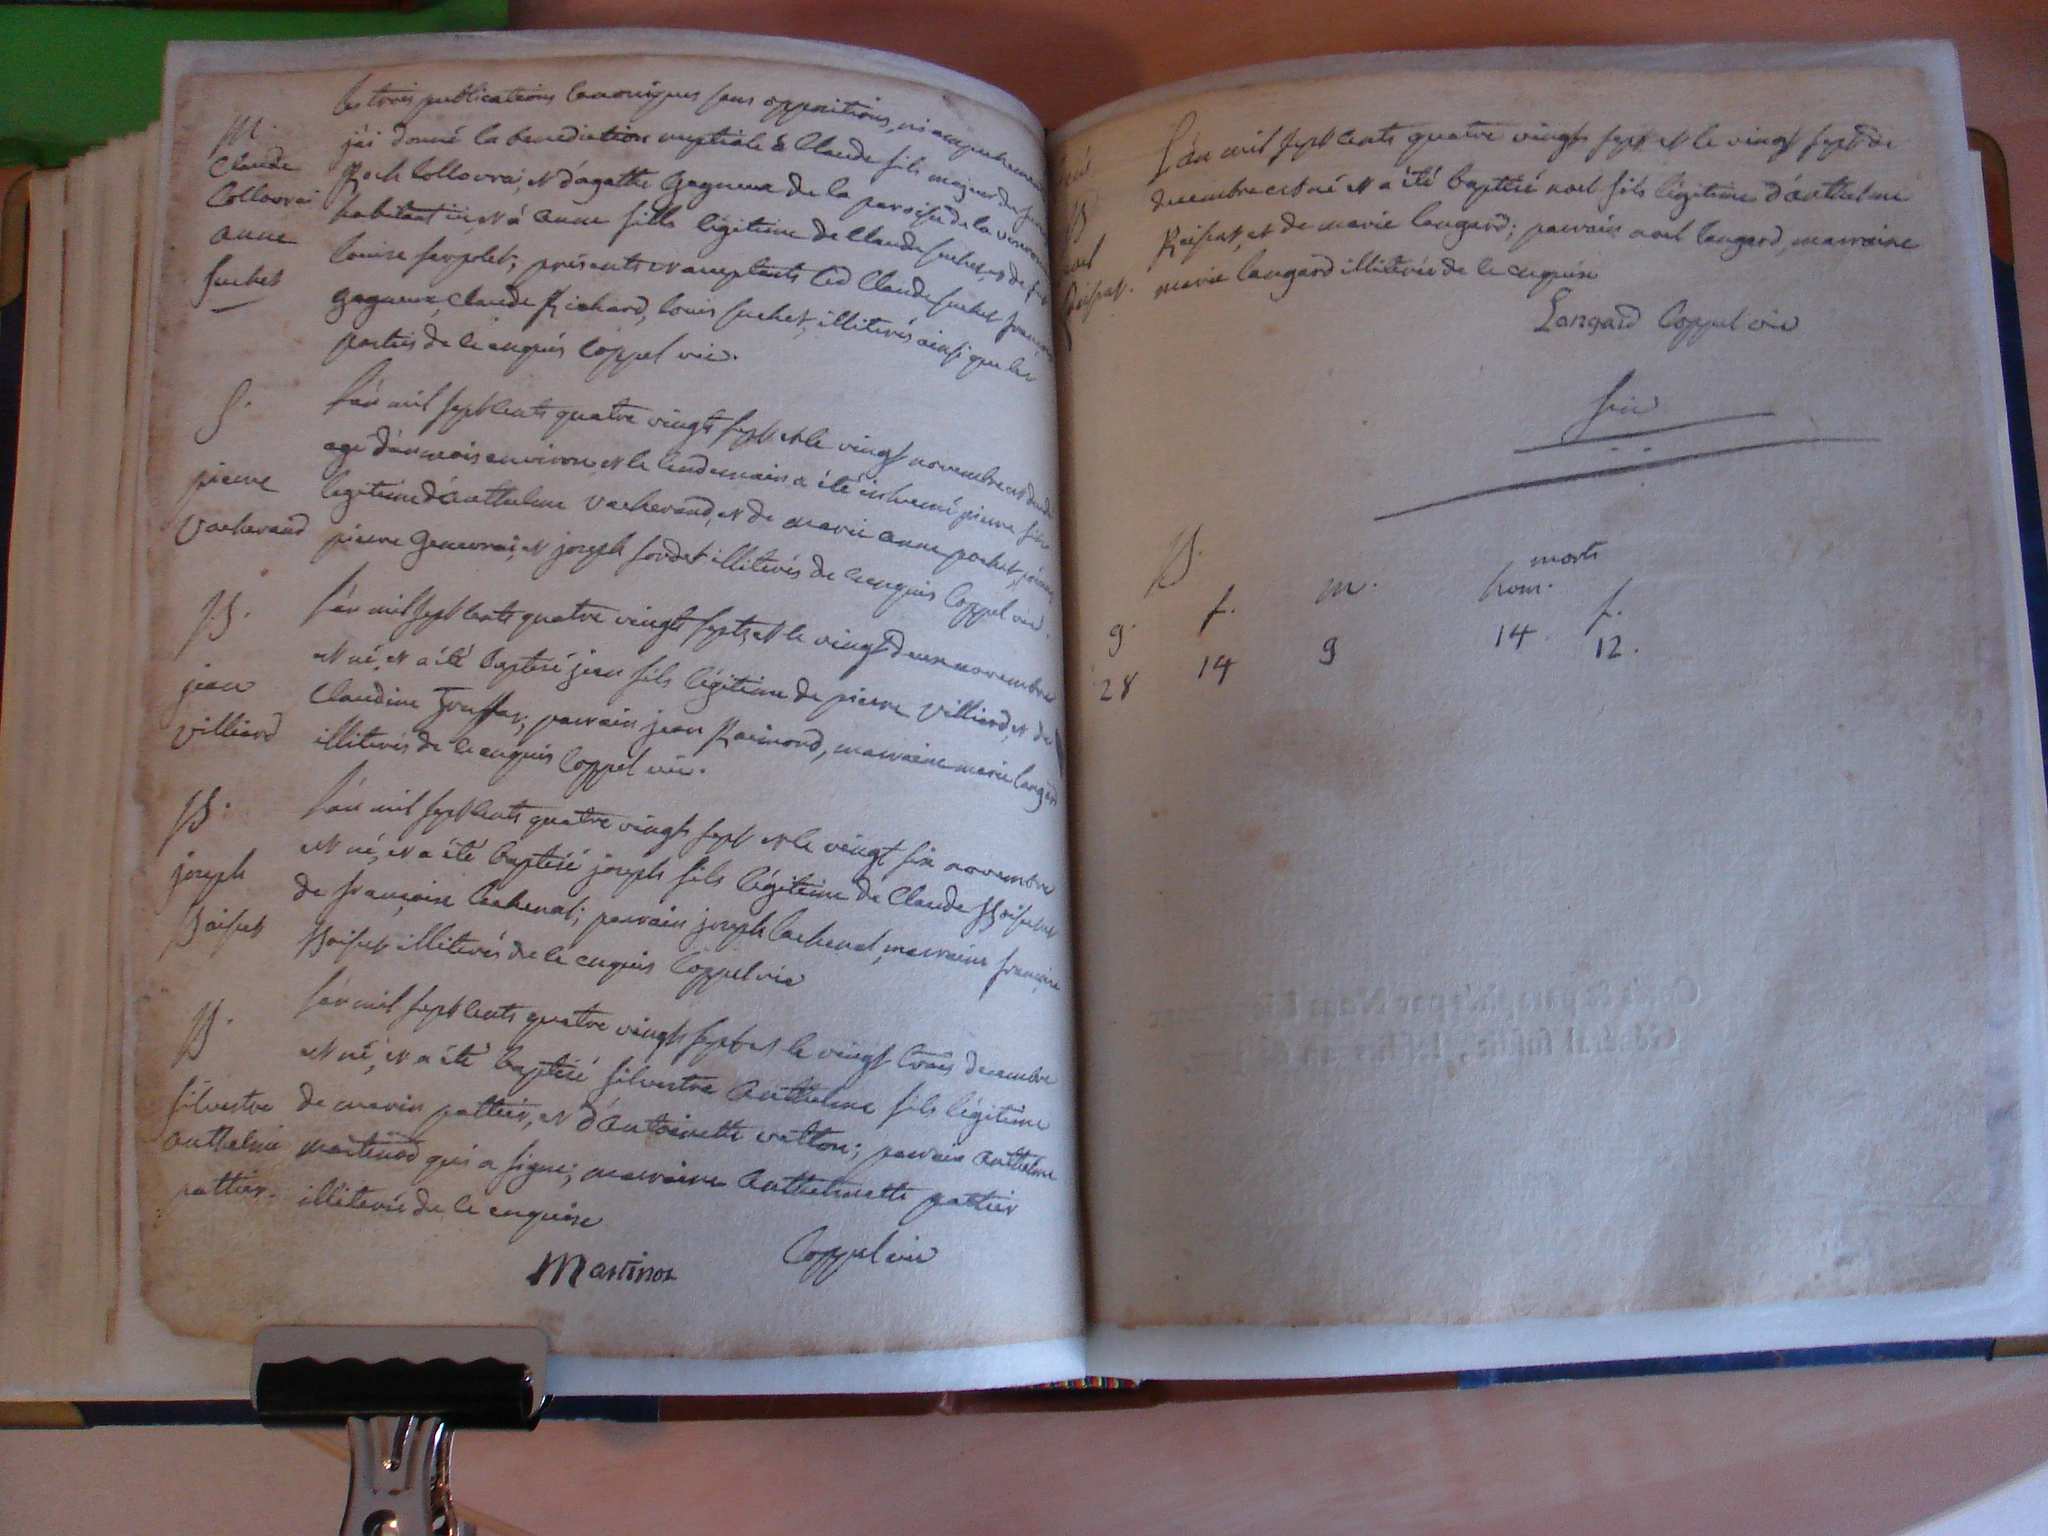 les trois publications canoniques sans oppositions, ni empechement
M.
j'ai donné la benediction nuptiale à Claude fils majeur de
Claude
Roch Collovrai, et d'agathe Gagneux de la paroisse de la
Collovrai
habitant ici, et à anne fille légitime de Claude Suchet, et de
anne
Louise perolet; présents et acceptants led Claude Suchet françois
Suchet
Gagneux, Claude Richard, louis Suchet, illiterés ainsi que les
parties de ce enquis Coppel vic.
S.
L'an mil sept cents quatre vingts sept et le vingt novembre est decedé
agé d'un mois environ, et le lendemain a été inhumé pierre fils
pierre
legitime d'anthelme vacherand, et de marie anne pochet, présents
vacherand
pierre Genevrai, et joseph sordet illiterés de ce enquis Coppel vic.
B.
L'an mil sept cents quatre vingts sept, et le vingt deux novembre
est né, et a été baptisé jean fils légitime de pierre villiard, et de
jean
Claudine ; parrain jean Raimond, marraine marie langard
villiard
illiterés de ce enquis Coppel vic.
B.
L'an mil sept cents quatre vingts sept et le vingt six novembre
est né, et a été baptisé joseph fils légitime de Claude Boisset
joseph
de françoise lachenal; parrain joseph lachenal, marraine françoise
Boisset
Boisset illiterés de ce enquis Coppel vic
B.
L'an mil sept cents quatre vingts sept et le vingt trois decembre
est né, et a été baptisé silvestre anthelme fils légitime
silvestre
de marin pattier, et d'antoinette vetton; parrain anthelme
anthelme
martinod qui a signe; marraine anthelmette pattier
pattier.
illiterée de ce enquise
Martinod Coppel vic
L'an mil sept cents quatre vingts sept et le vingt sept de
B
decembre est né et a été baptisé noel fils légitime d'anthelme
noel
Boisset, et de marie langard; parrain noel langard, marraine
Boisset.
marie langard illiterée de ce enquise
Langard Coppel vic
fin
B. m. morts
g. f. hom. f.
28 14 9 14. 12.